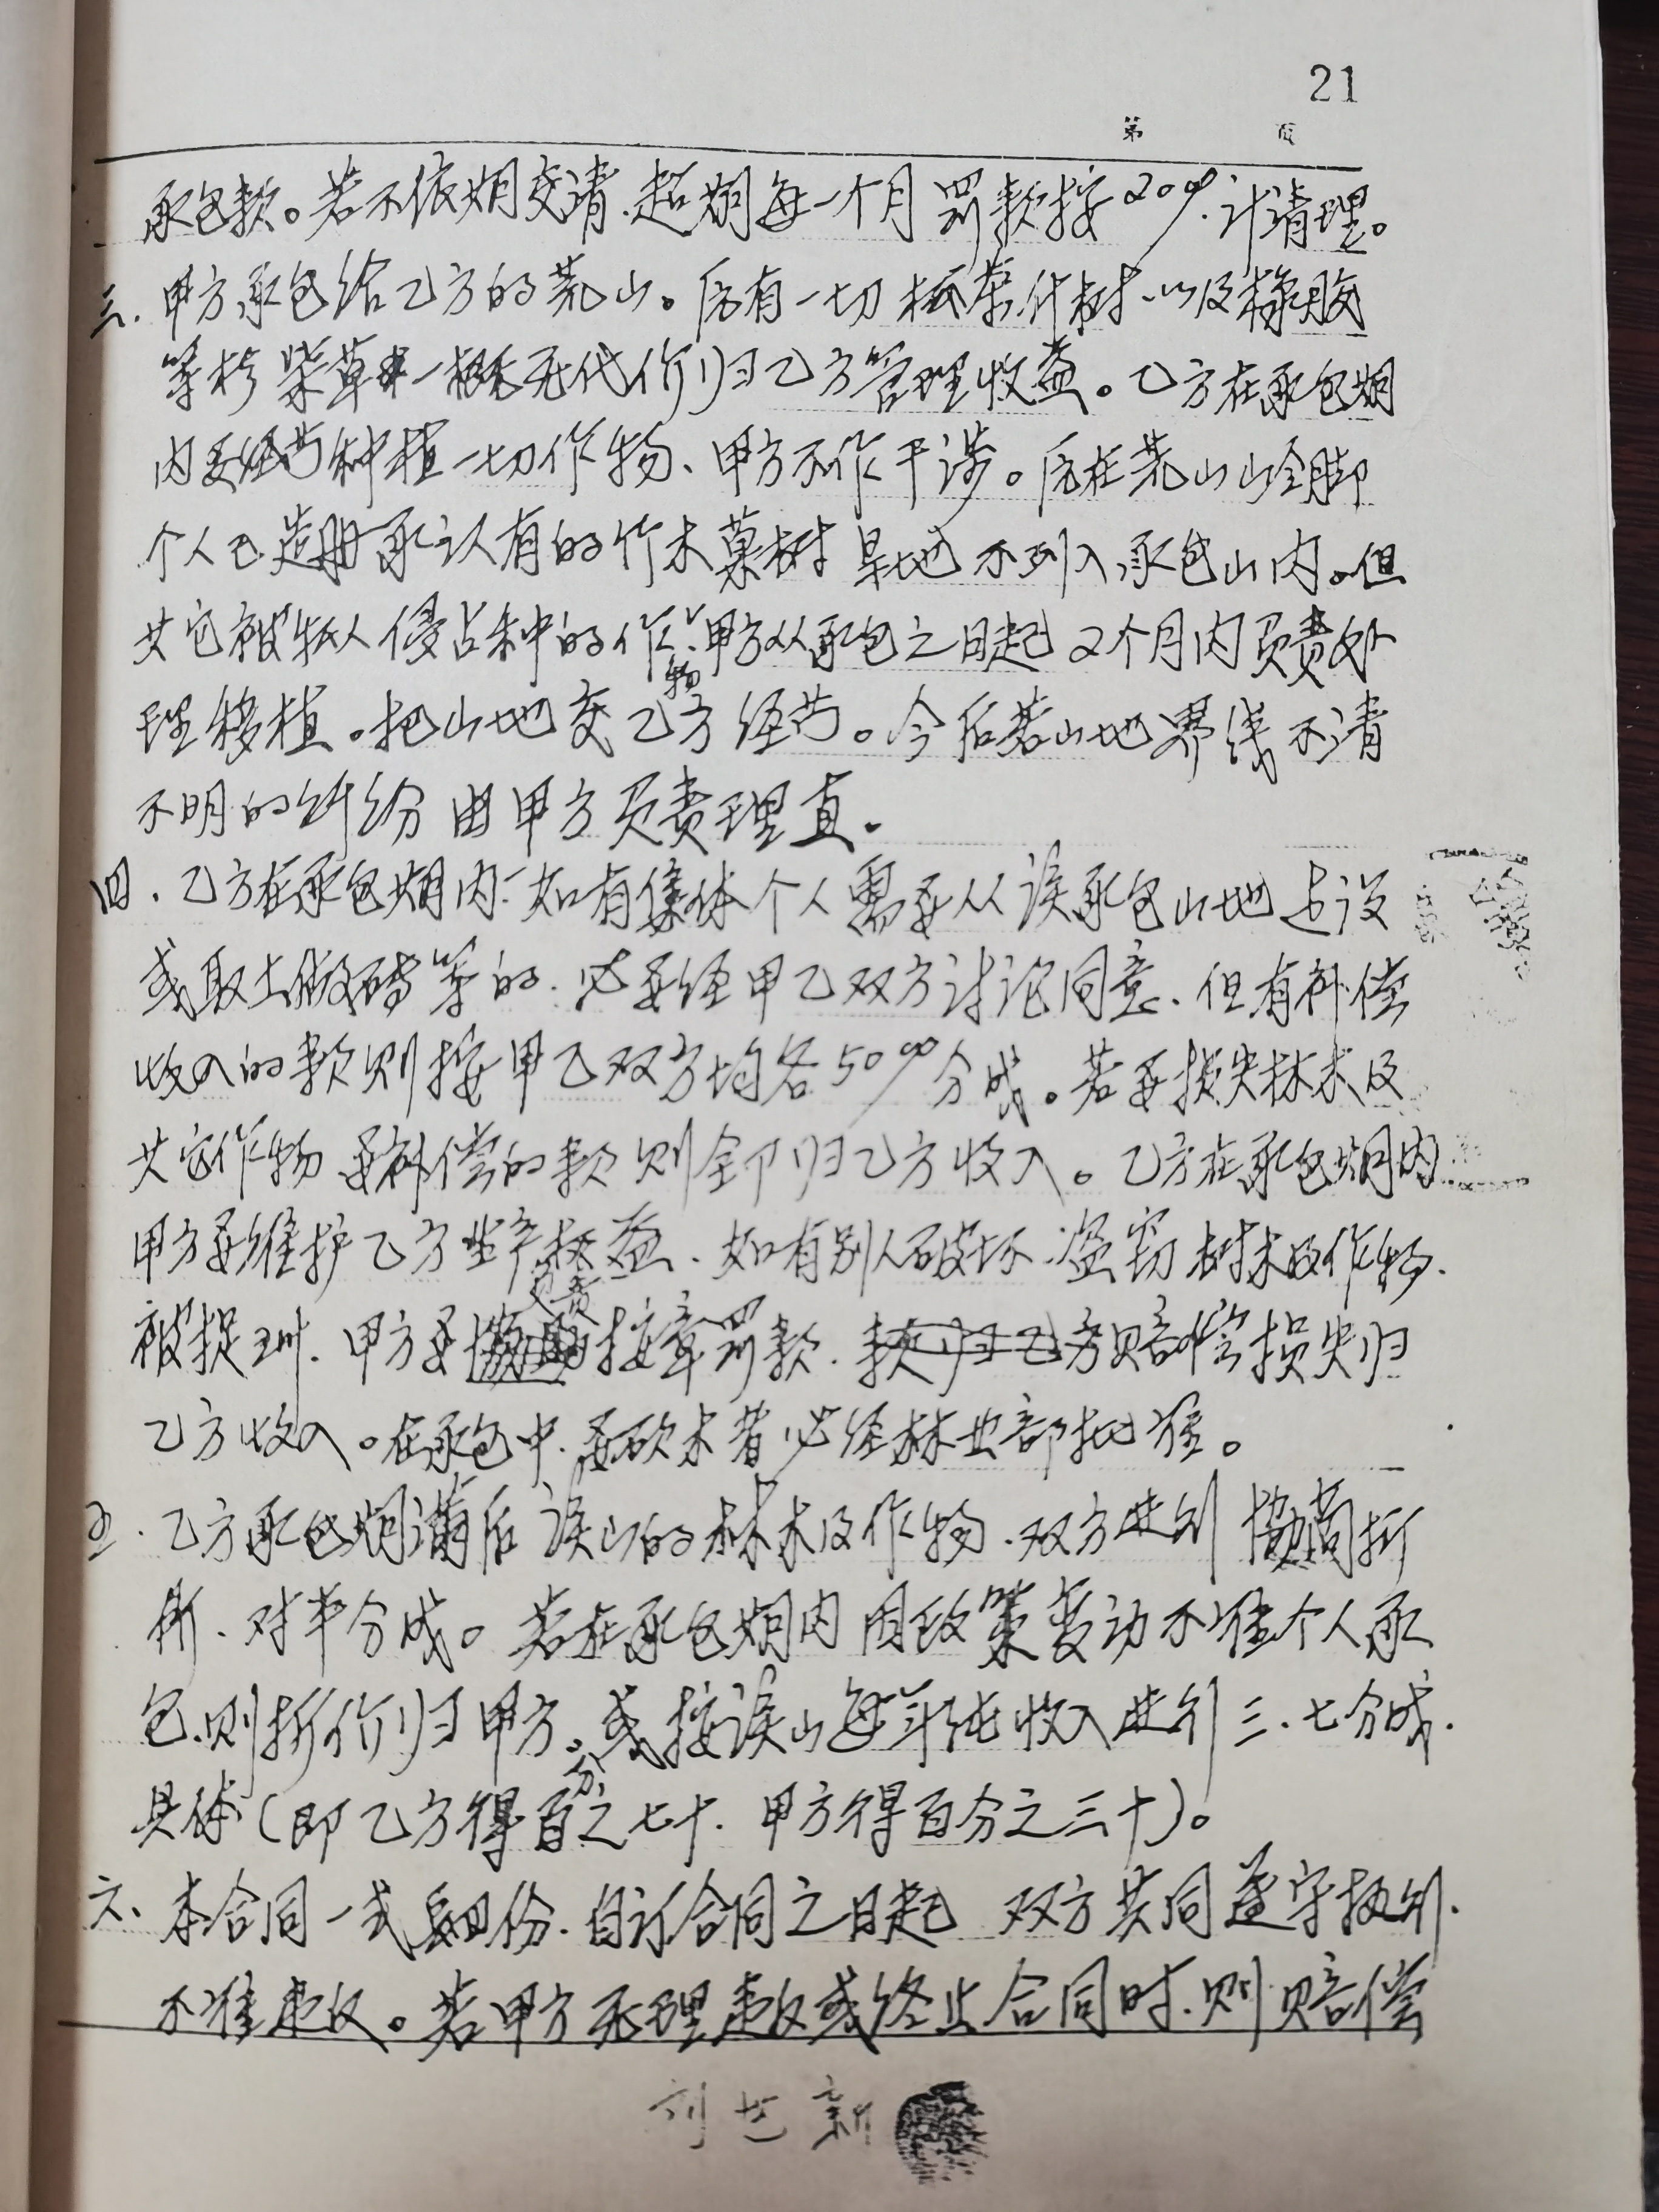 21
第 页
承包款。若不依期交清.超期每一个月罚款按20%.计清理。
三.甲方承包给乙方的荒山。原有一切松杂什树.以及橡胶
等杉柴草一概无代价归乙方管理收益。乙方在承包期
内要经营种植一切作物、甲方不作干涉。原在荒山山岭脚
个人已造册承认有的竹木菓树旱地不列入承包山内。但
其它被私人侵占种的作物.甲方从承包之日起2个月内负责处
理移植。把山地交乙方经营。今后若山地界线不清
不明的纠纷由甲方负责理直.
四.乙方在承包期内.如有集体个人需要从该承包山地占设
或取土做砖等的.必要经甲乙双方讨论同意.但有补偿
收入的款则按甲乙双方均各50%分成。若要损失林木及
其它作物要补偿的款则全部归乙方收入。乙方在承包期内
甲方要维护乙方生产权益.如有别人破坏.盗窃树木及作物.
被捉到.甲方要负责按章罚款.赔偿损失归
乙方收入。在承包中.要砍木者必经林业部批准。
五.乙方承包期满后该山的林木及作物.双方进行协商折
所、对半分成。若在承包期内因政策变动不准个人承
包.则折价归甲方。或按该山每年纯收入进行三.七分成.
具体(即乙方得百分之七十.甲方得百分之三十)。
六、本合同一式四份.自订合同之日起 双方共同遵守执行.
不准违反。若甲方无理违反或终止合同时.则赔偿